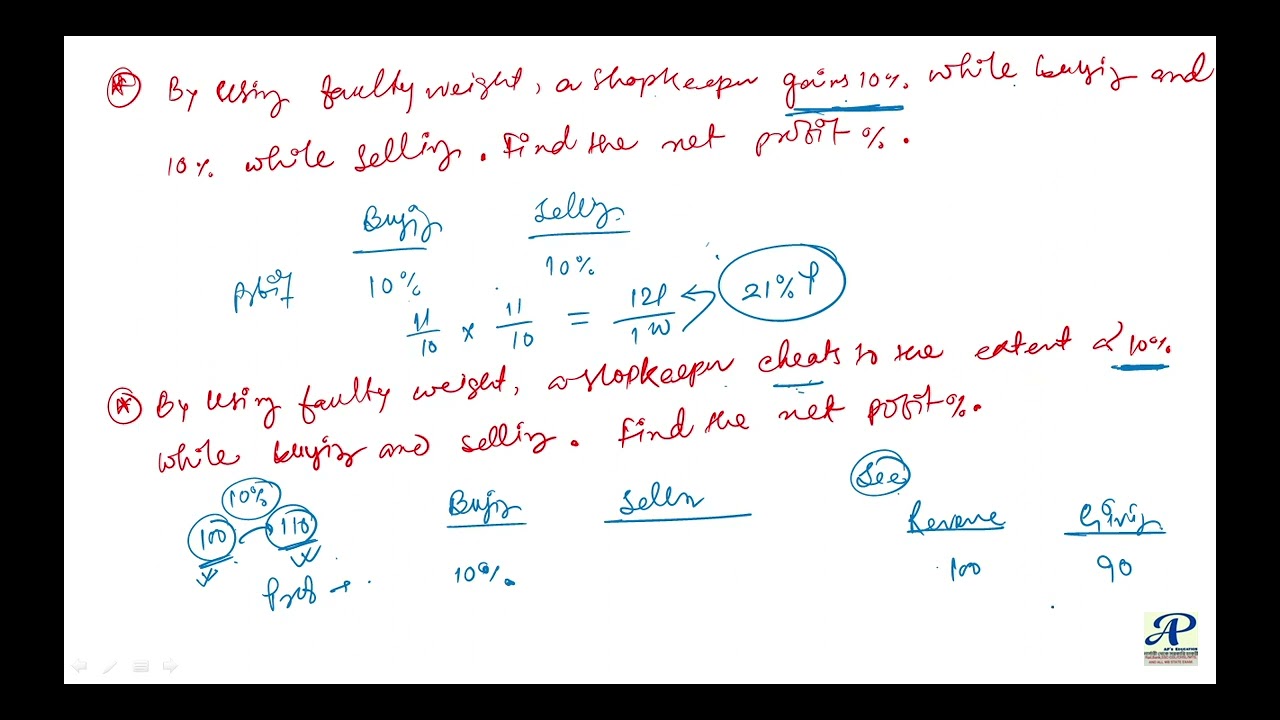 * By using faulty weight, a shopkeeper gains 10% while buying and
10% while selling. Find the net profit %.
Buying Selling
Profit 10% 10%
11/10 × 11/10 = 121/100 21% P
* By using faulty weight, a shopkeeper cheats to the extent of 10%
while buying and selling. Find the net profit %.
10% See
100 110 Buying Selln Revenue Giving
Prof → 10%. 100 90
AP
AP's Education